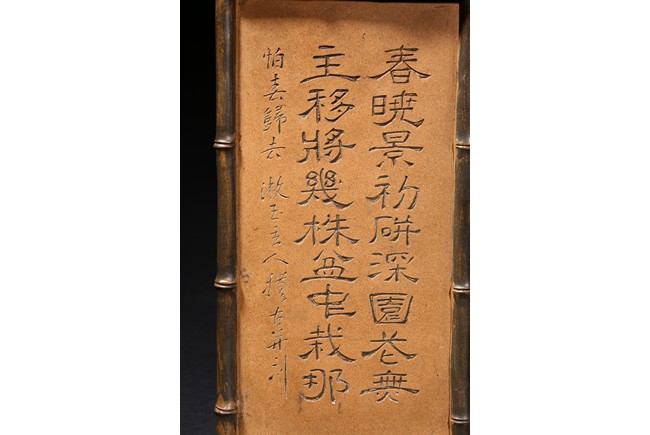 春曉景初硏深園花無
主移將幾株盆中栽那
怕春歸去 漱玉主人 古并刻